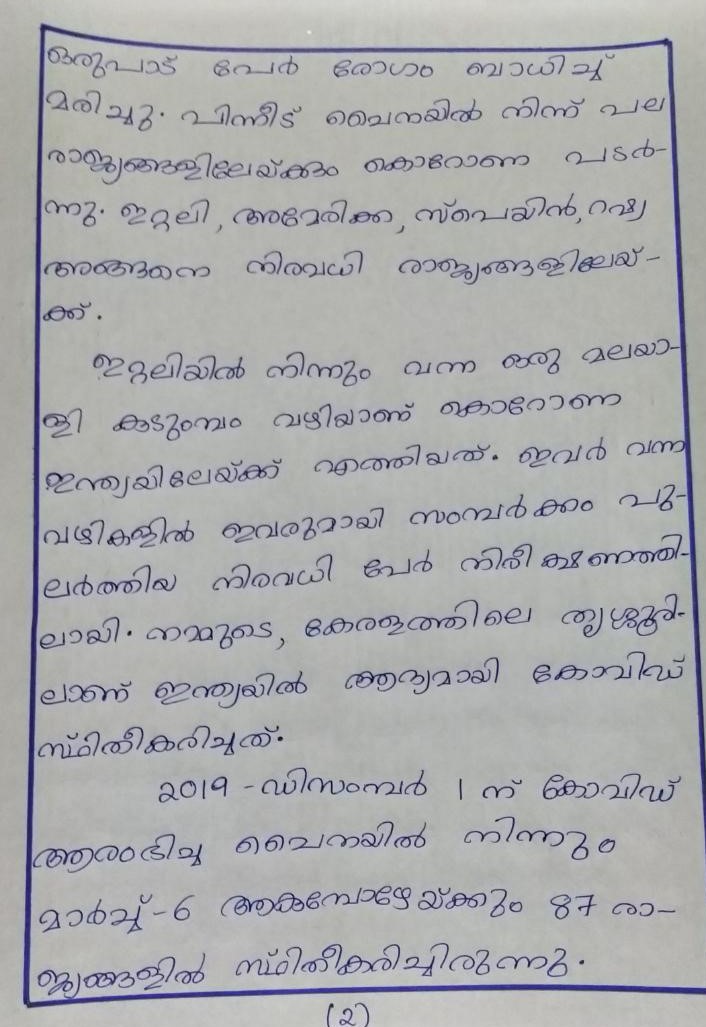 ഒരുപാട് പേർ രോഗം ബാധിച്ച്
മരിച്ചു. പിന്നീട് ചൈനയിൽ നിന്ന് പല
രാജ്യങ്ങളിലേയ്ക്കും കൊറോണ പടർ-
ന്നു. ഇറ്റലി, അമേരിക്ക, സ്പെയിൻ, റഷ്യ
അങ്ങനെ നിരവധി രാജ്യങ്ങളിലേയ്-
ക്ക്.
ഇറ്റലിയിൽ നിന്നും വന്ന ഒരു മലയാ-
ളി കുടുംബം വഴിയാണ് കൊറോണ
ഇന്ത്യയിലേയ്ക്ക് എത്തിയത്. ഇവർ വന്ന
വഴികളിൽ ഇവരുമായി സമ്പർക്കം പു-
ലർത്തിയ നിരവധി പേർ നിരീക്ഷണത്തി-
ലായി. നമ്മുടെ, കേരളത്തിലെ തൃശ്ശൂരി-
ലാണ് ഇന്ത്യയിൽ ആദ്യമായി കോവിഡ്
സ്ഥിതീകരിച്ചത്.
2019 - ഡിസംമ്പർ 1 ന് കോവിഡ്
ആരംഭിച്ച ചൈനയിൽ നിന്നും
മാർച്ച്-6 ആകുമ്പോഴേയ്ക്കും 87 രാ-
ജ്യങ്ങളിൽ സ്ഥിതീകരിച്ചിരുന്നു.
(2)